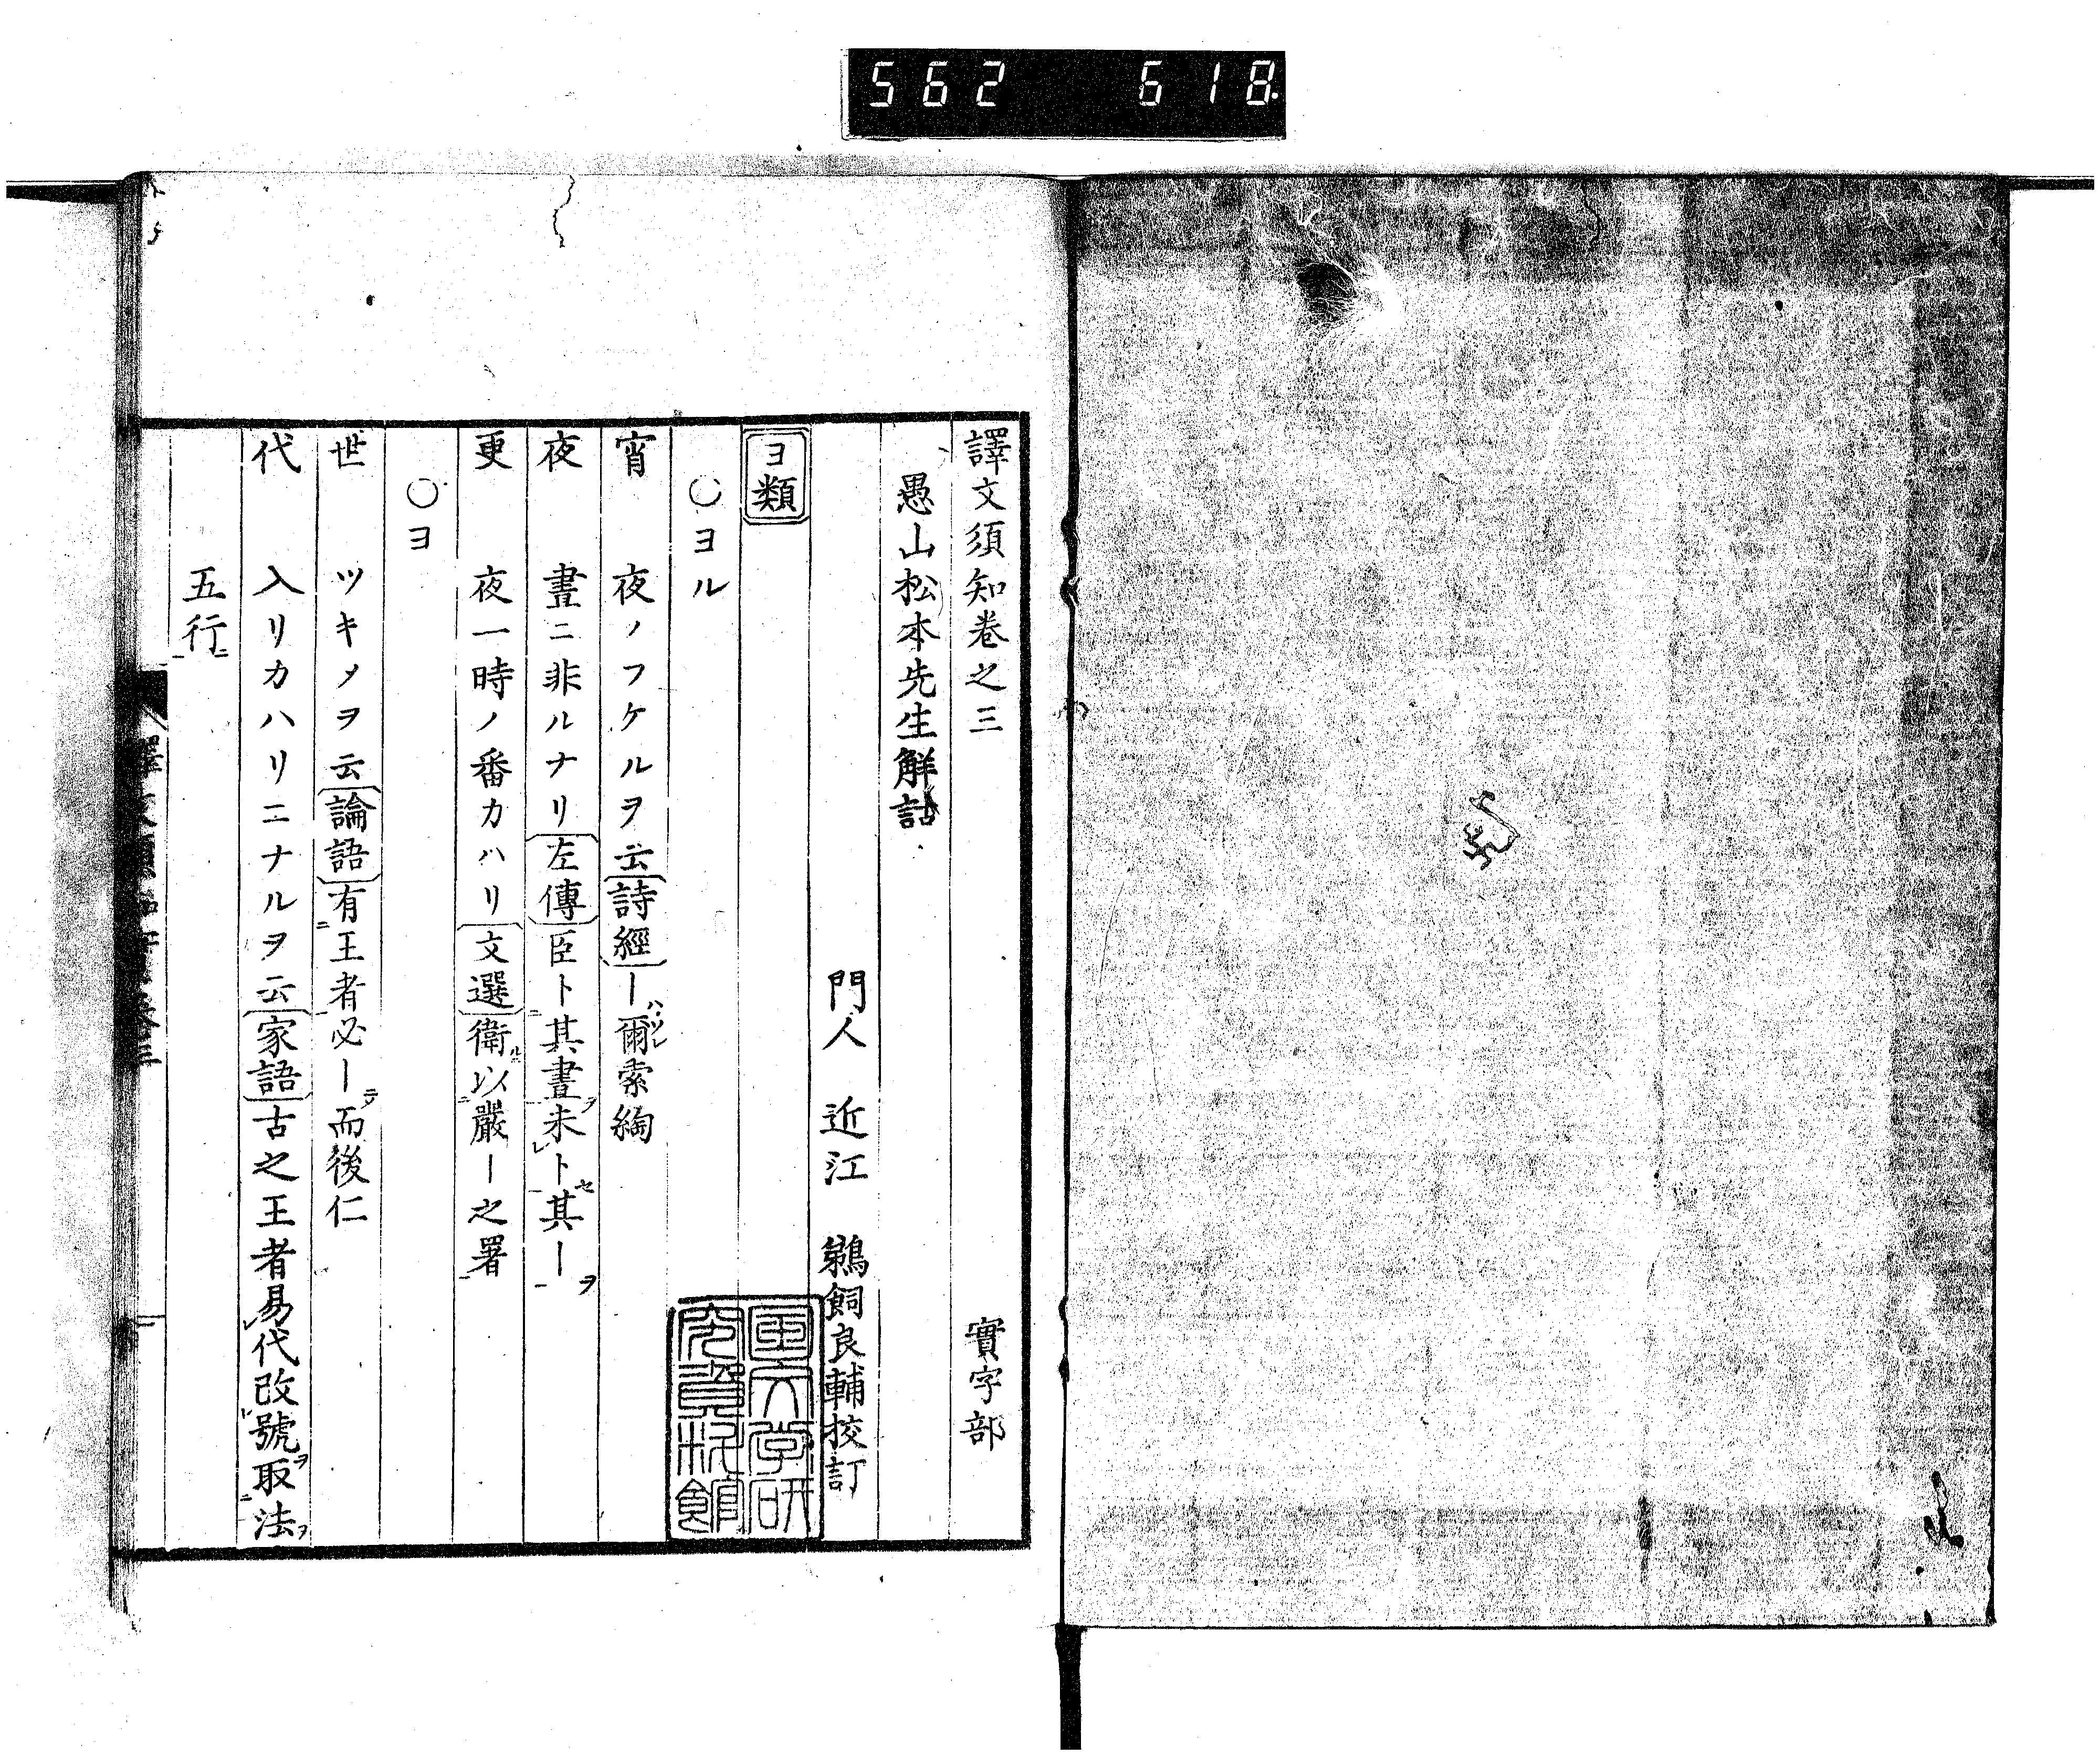 562 618.
譯文須知卷之三 實字部
愚山松本先生解詁
門人 近江 鵜飼良輔挍訂
ヨ類
○ヨル
宵 夜ノフケルヲ云詩經ー爾索綯
夜 晝ニ非ルナリ左傳臣卜其晝未卜其ー
更 夜一時ノ番カハリ文選衛以嚴ー之署
○ヨ
世 ツキメヲ云論語有王者必ー而後仁
代 入リカハリニナルヲ云家語古之王者易代改號取法
五行
國文学研
究資料館